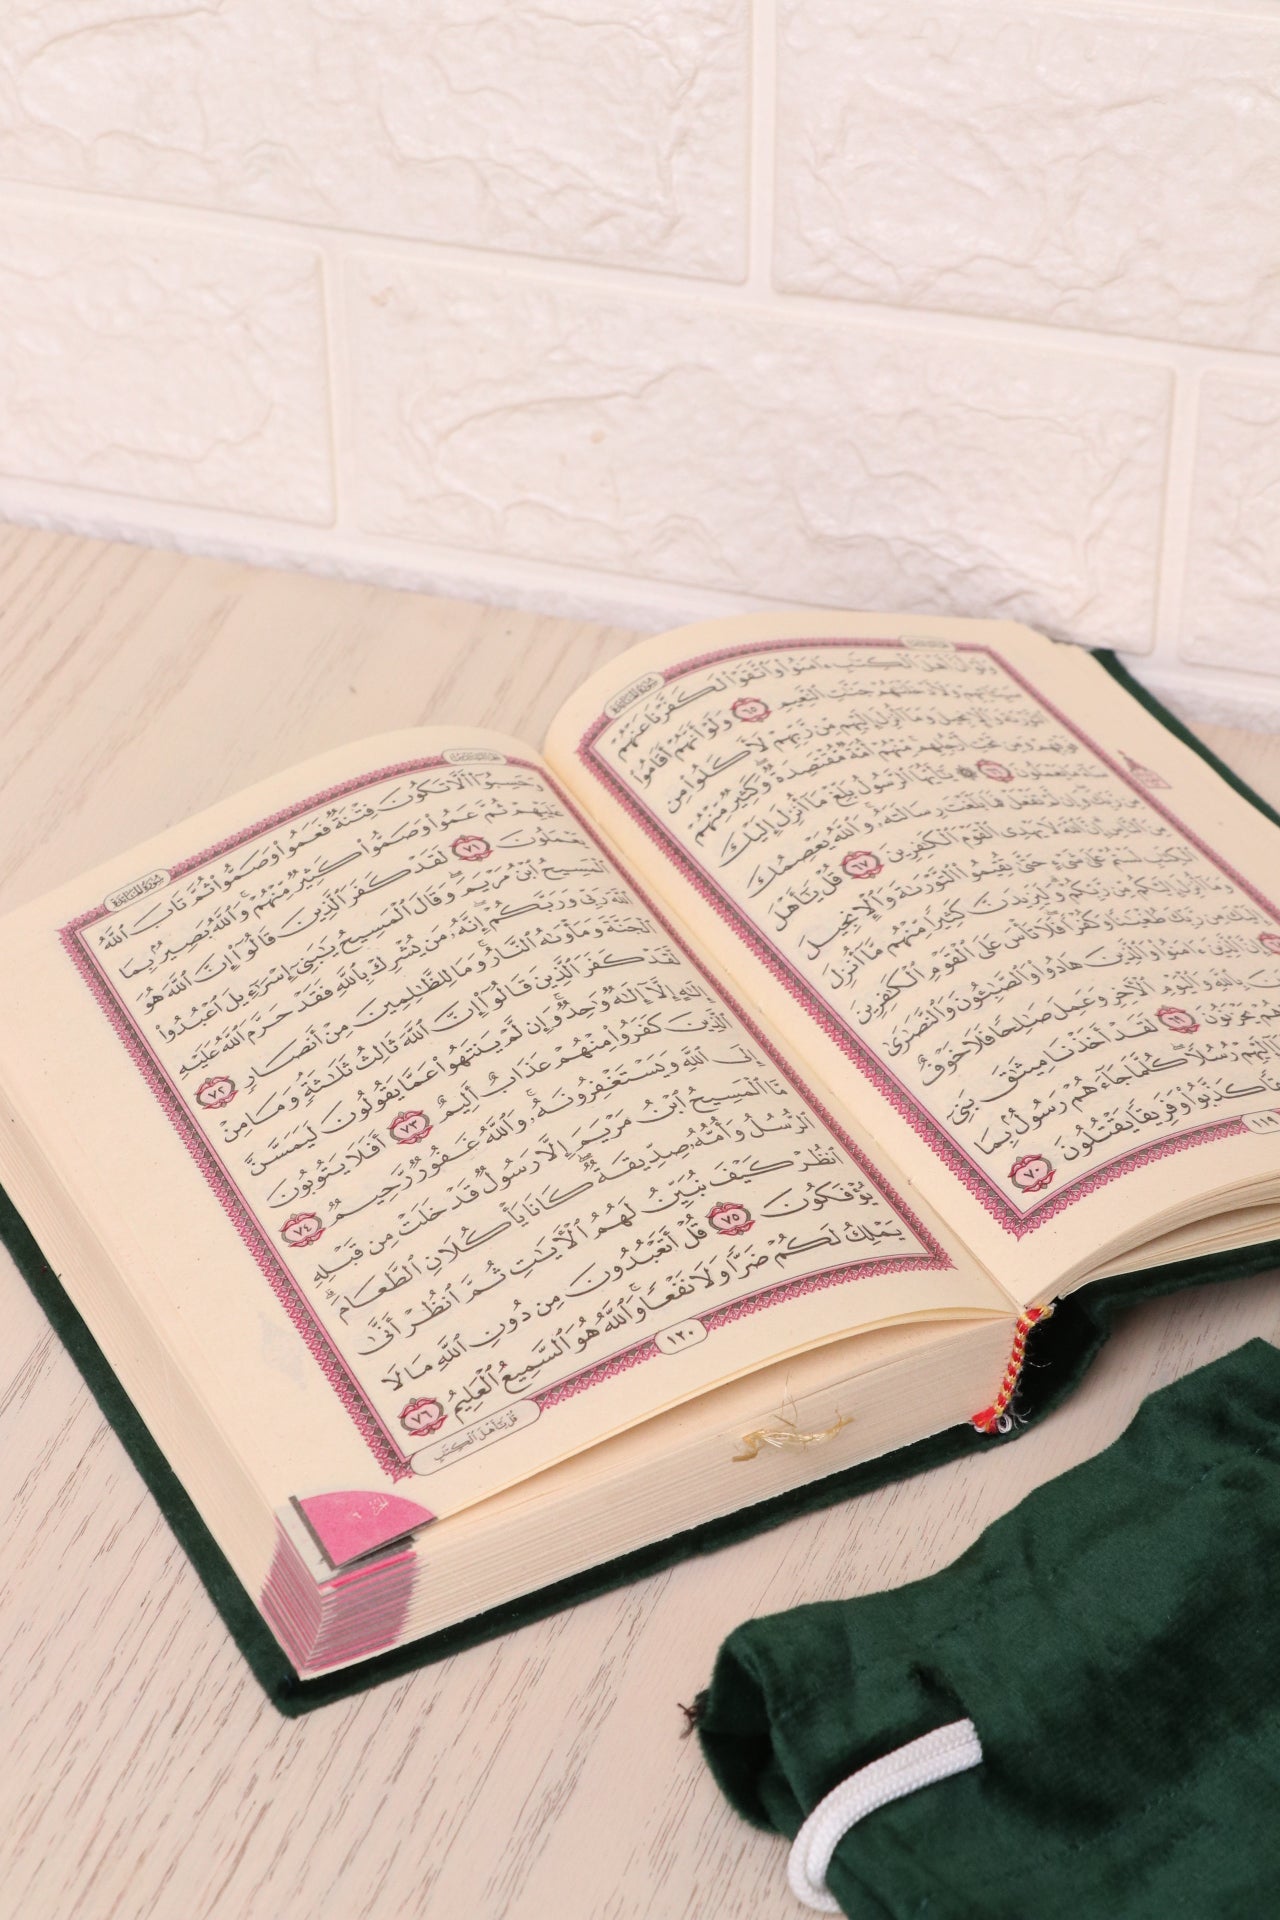 سورة المائدة
ولو أن أهل الكتب ءامنوا واتقوا لكفرنا عنهم
سيـاتهم ولأدخلنهم جنت النعيم ٦٥ ولو أنهم أقاموا
التورىة والإنجيل وما أنزل إليهم من ربهم لأكلوا من
فوقهم ومن تحت أرجلهم منهم أمة مقتصدة وكثير منهم
ساء ما يعملون ٦٦ ۞ يأيها الرسول بلغ ما أنزل إليك
من ربك وإن لم تفعل فما بلغت رسالته والله يعصمك
من الناس إن الله لا يهدى القوم الكفرين ٦٧ قل يأهل
الكتب لستم على شىء حتى تقيموا التورىة والإنجيل
وما أنزل إليكم من ربكم وليزيدن كثيرا منهم ما أنزل
إليك من ربك طغينا وكفرا فلا تأس على القوم الكفرين
إن الذين ءامنوا والذين هادوا والصبـون والنصرى
بالله واليوم الأخر وعمل صلحا فلا خوف
هم يحزنون ٦٩ لقد أخذنا ميثق بنى
إليهم رسلا كلما جاءهم رسول بما
كذبوا وفريقا يقتلون ٧٠
١١٩
سورة المائدة
وحسبوا ألا تكون فتنة فعموا وصموا ثم تاب الله
عليهم ثم عموا وصموا كثير منهم والله بصير بما
يعملون ٧١ لقد كفر الذين قالوا إن الله هو
المسيح ابن مريم وقال المسيح يبنى إسرءيل اعبدوا
الله ربى وربكم إنه من يشرك بالله فقد حرم الله عليه
الجنة ومأوىه النار وما للظلمين من أنصار ٧٢
لقد كفر الذين قالوا إن الله ثالث ثلثة وما من
إله إلا إله وحد وإن لم ينتهوا عما يقولون ليمسن
الذين كفروا منهم عذاب أليم ٧٣ أفلا يتوبون
إلى الله ويستغفرونه والله غفور رحيم ٧٤
ما المسيح ابن مريم إلا رسول قد خلت من قبله
الرسل وأمه صديقة كانا يأكلان الطعام
انظر كيف نبين لهم الأيت ثم انظر أنى
يؤفكون ٧٥ قل أتعبدون من دون الله ما لا
يملك لكم ضرا ولا نفعا والله هو السميع العليم ٧٦
١٢٠
قل يأهل الكتب
الجزء ٦